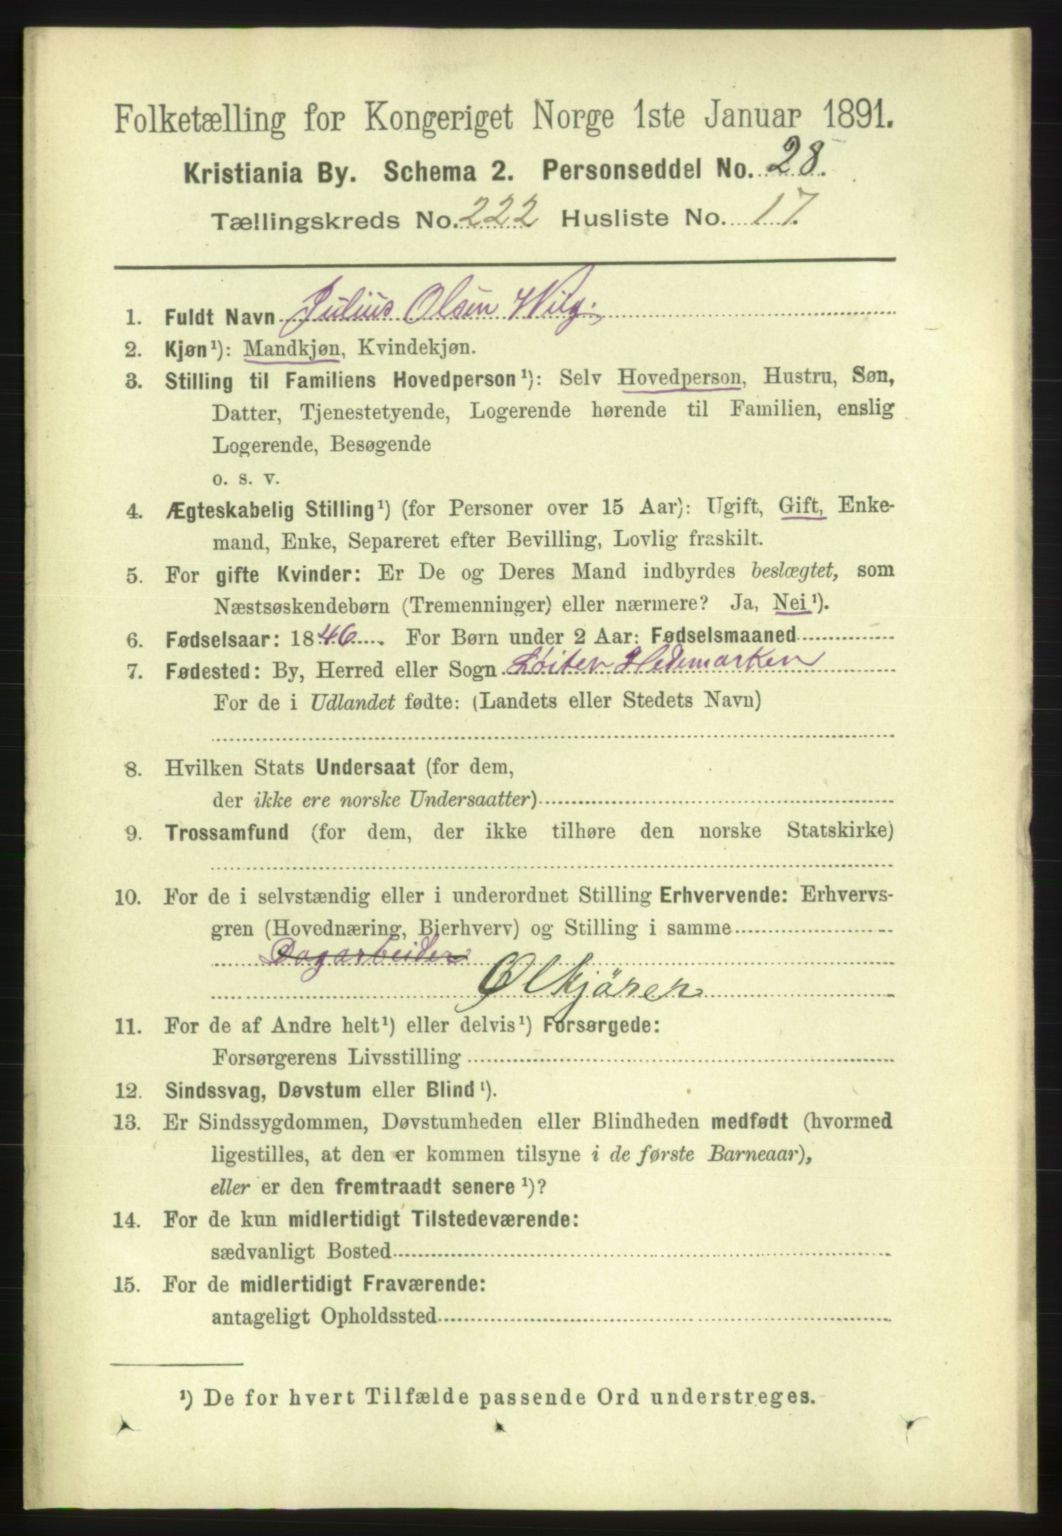 Folketælling for Kongeriget Norge 1ste Januar 1891.
Kristiania By. Schema 2. Personseddel No. 28.
Tællingskreds No. 222 Husliste No. 17.
1. Fuldt Navn Julius Olsen Wiig.
2. Kjøn¹): Mandkjøn, Kvindekjøn.
3. Stilling til Familiens Hovedperson¹): Selv Hovedperson, Hustru, Søn,
Datter, Tjenestetyende, Logerende hørende til Familien, enslig
Logerende, Besøgende
o. s. v.
4. Ægteskabelig Stilling¹) (for Personer over 15 Aar): Ugift, Gift, Enke-
mand, Enke, Separeret efter Bevilling, Lovlig fraskilt.
5. For gifte Kvinder: Er De og Deres Mand indbyrdes beslægtet, som
Næstsøskendebørn (Tremenninger) eller nærmere? Ja, Nei¹).
6. Fødselsaar: 1846. For Børn under 2 Aar: Fødselsmaaned
7. Fødested: By, Herred eller Sogn Løiten Hedemarken
For de i Udlandet fødte: (Landets eller Stedets Navn)
8. Hvilken Stats Undersaat (for dem,
der ikke ere norske Undersaatter)
9. Trossamfund (for dem, der ikke tilhøre den norske Statskirke)
10. For de i selvstændig eller i underordnet Stilling Erhvervende: Erhvervs-
gren (Hovednæring, Bierhverv) og Stilling i samme
Dagarbeider
Ølkjører
11. For de af Andre helt¹) eller delvis¹) Forsørgede:
Forsørgerens Livsstilling
12. Sindssvag, Døvstum eller Blind¹).
13. Er Sindssygdommen, Døvstumheden eller Blindheden medfødt (hvormed
ligestilles, at den er kommen tilsyne i de første Barneaar),
eller er den fremtraadt senere¹)?
14. For de kun midlertidigt Tilstedeværende:
sædvanligt Bosted
15. For de midlertidigt Fraværende:
antageligt Opholdssted
¹) De for hvert Tilfælde passende Ord understreges.